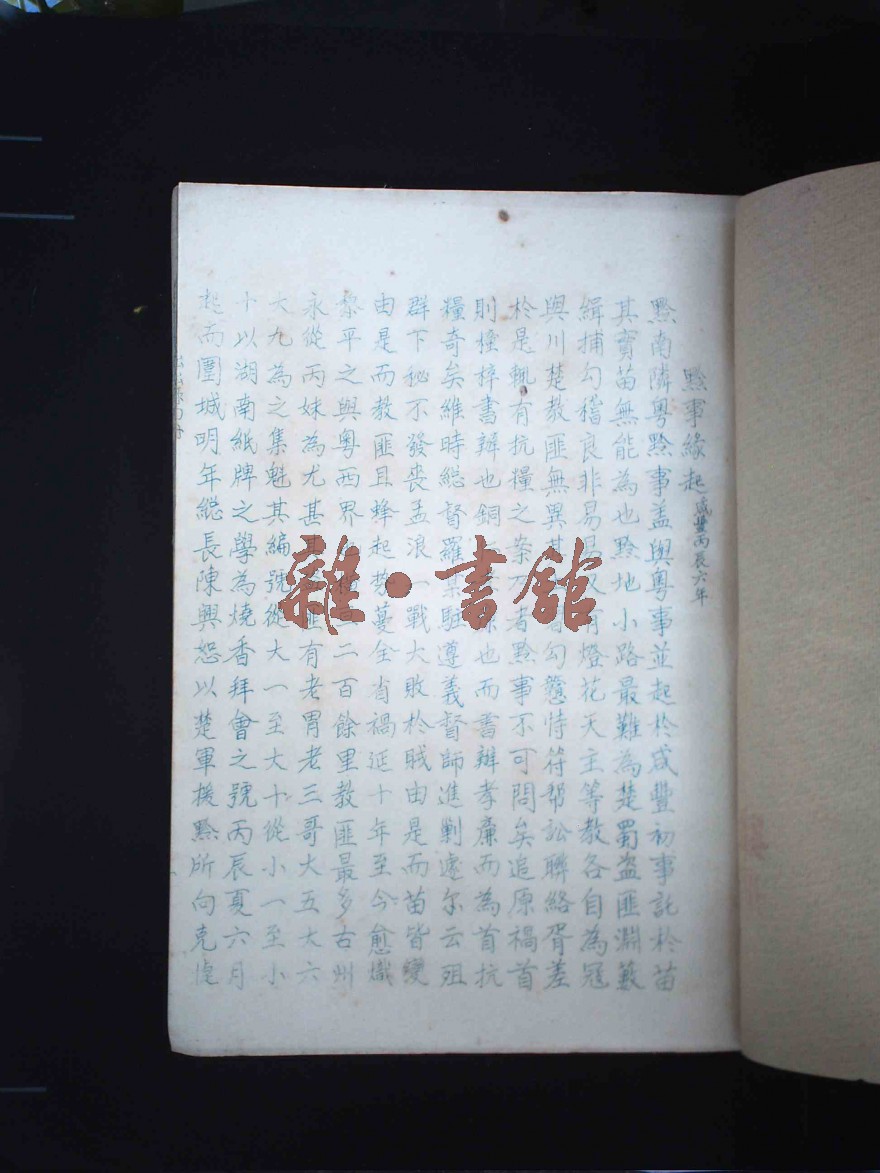 黔事緣起咸豐丙辰六年
黔南隣粤黔事盖與粤事並起於咸豐初事託於苗
其實苗無能為也黔地小路最難為楚蜀盗匪淵藪
緝捕勾稽良非易易又有燈花天主等教各自為冠
與川楚教匪無異其勾戀恃符帮訟聯絡胥差
於是輒有抗糧之案者黔事不可問矣追原禍首
則桂梓書辦也銅也而書辦孝廉而為首抗
糧奇矣維時総督羅駐遵義督師進剿遽尔云殂
群下秘不發喪孟浪一戰大敗於賊由是而苗皆變
由是而教匪且蜂起势蔓全省禍延十年至今愈熾
黎平之與粤西界二百餘里教匪最多古州
永從丙妹為尤甚匪有老冒老三哥大五大六
大九為之集魁其編號從大一至大十從小一至小
十以湖南紙牌之學為燒香拜會之號丙辰夏六月
起而圍城明年総長陳興恕以楚軍援黔所向克
雜·書館